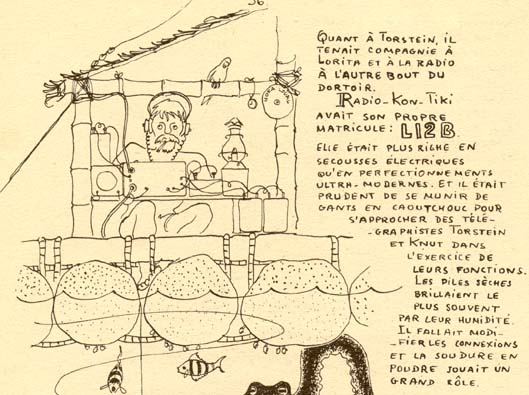 36
QUANT À TORSTEIN, IL
TENAIT COMPAGNIE À
LORITA ET À LA RADIO
À L'AUTRE BOUT DU
DORTOIR.
RADIO-KON-TIKI
AVAIT SON PROPRE
MATRICULE: LI2B.
ELLE ÉTAIT PLUS RICHE EN
SECOUSSES ÉLECTRIQUES
QU'EN PERFECTIONNEMENTS
ULTRA-MODERNES. ET IL ÉTAIT
PRUDENT DE SE MUNIR DE
GANTS EN CAOUTCHOUC POUR
S'APPROCHER DES TÉLÉ-
-GRAPHISTES TORSTEIN
ET KNUT DANS
L'EXERCICE DE
LEURS FONCTIONS.
LES PILES SÈCHES
BRILLAIENT LE
PLUS SOUVENT
PAR LEUR HUMIDITÉ.
IL FALLAIT MODI-
-FIER LES CONNEXIONS
ET LA SOUDURE EN
POUDRE JOUAIT UN
GRAND RÔLE.